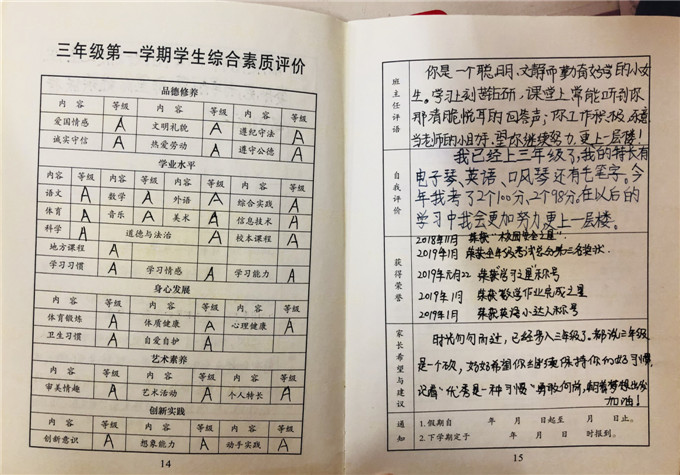 三年级第一学期学生综合素质评价
品德修养
内容 等级 内容 等级 内容 等级
爱国情感 A 文明礼貌 A 遵纪守法 A
诚实守信 A 热爱劳动 A 遵守公德 A
学业水平
内容 等级 内容 等级 内容 等级 内容 等级
语文 A 数学 A 外语 A 综合实践 A
体育 A 音乐 A 美术 A 信息技术 A
科学 A 道德与法治 A 校本课程 A
地方课程 A
学习习惯 A 学习情感 A 学习能力 A
身心发展
内容 等级 内容 等级 内容 等级
体育锻炼 A 体质健康 A 心理健康 A
卫生习惯 A 自爱自护 A
艺术素养
内容 等级 内容 等级 内容 等级
审美情趣 A 艺术活动 A 个人特长 A
创新实践
内容 等级 内容 等级 内容 等级
创新意识 A 想象能力 A 动手实践 A
14
班主任评语
你是一个聪明、文静而勤奋好学的小女
生。学习上刻苦钻研,课堂上常能听到你
那清脆悦耳的回答声;你工作积极,乐意
当老师的小助手。望你继续努力,更上一层楼!
自我评价
我已经上三年级了,我的特长有
电子琴、英语、口风琴还有毛笔字。今
年我考了2个100分、2个98分。在以后的
学习中我会更加努力,更上一层楼。
获得荣誉
2018年11月 荣获"校园安全之星"
2019年1月 荣获全年级考试总分第三名奖状.
2019年元月22 荣获"学习之星"称号
2019年1月 荣获数学作业完成之星
2019年1月 荣获英语小达人称号
家长希望与建议
时光匆匆而过,已经步入三年级了.都说三年级
是一个坎,妈妈希望你能继续保持你的好习惯
记着"优秀是一种习惯"勇敢向前,朝着梦想出发
加油!
通知
1.假期自 年 月 日起至 月 日止。
2.下学期定于 年 月 日 时报到。
15